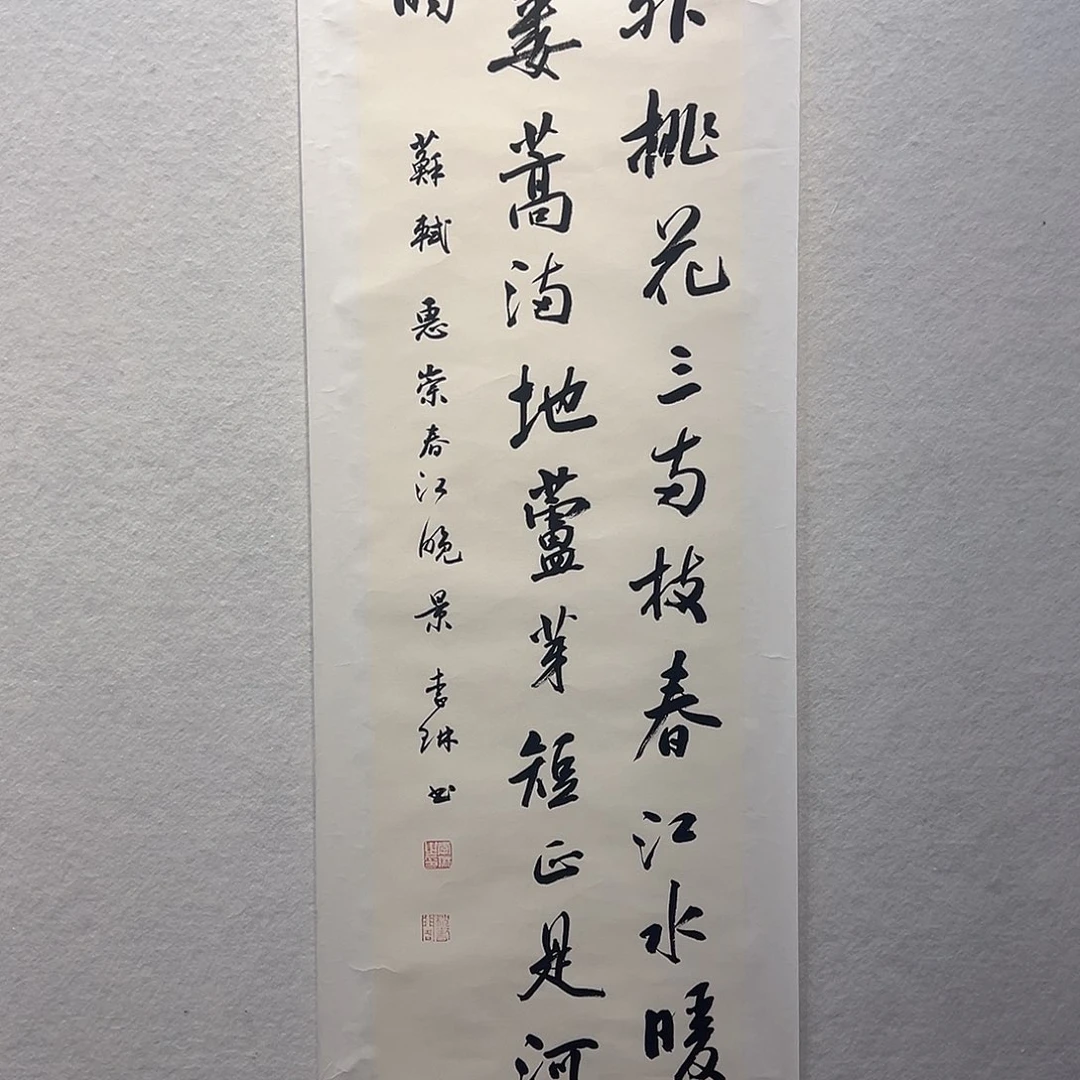 外桃花三两枝春江水暖
蒌蒿满地蘆芽短正是河
時
蘇軾惠崇春江晚景李琳书